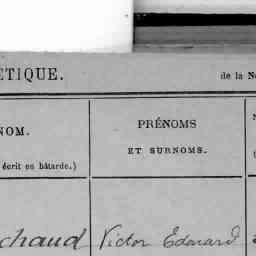 ÉTIQUE. de la N
NOM. PRÉNOMS
écrit en bâtarde.) ET SURNOMS.
chaud Victor Edouard